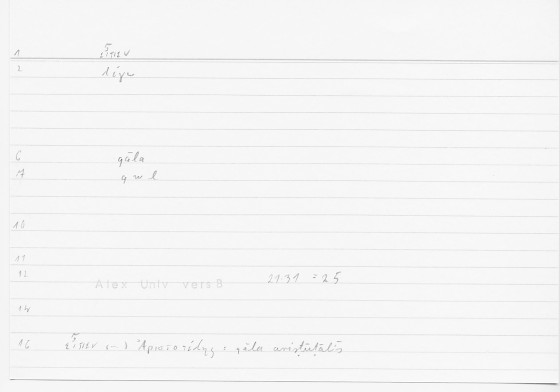 1 εἶπεν
2 λέγω
6 qāla
7 q w l
10
11
12 Alex Univ vers B 21.31 = 25
14
16 εἶπεν (–) Ἀριστοτέλης : qāla arisṭūṭālīs